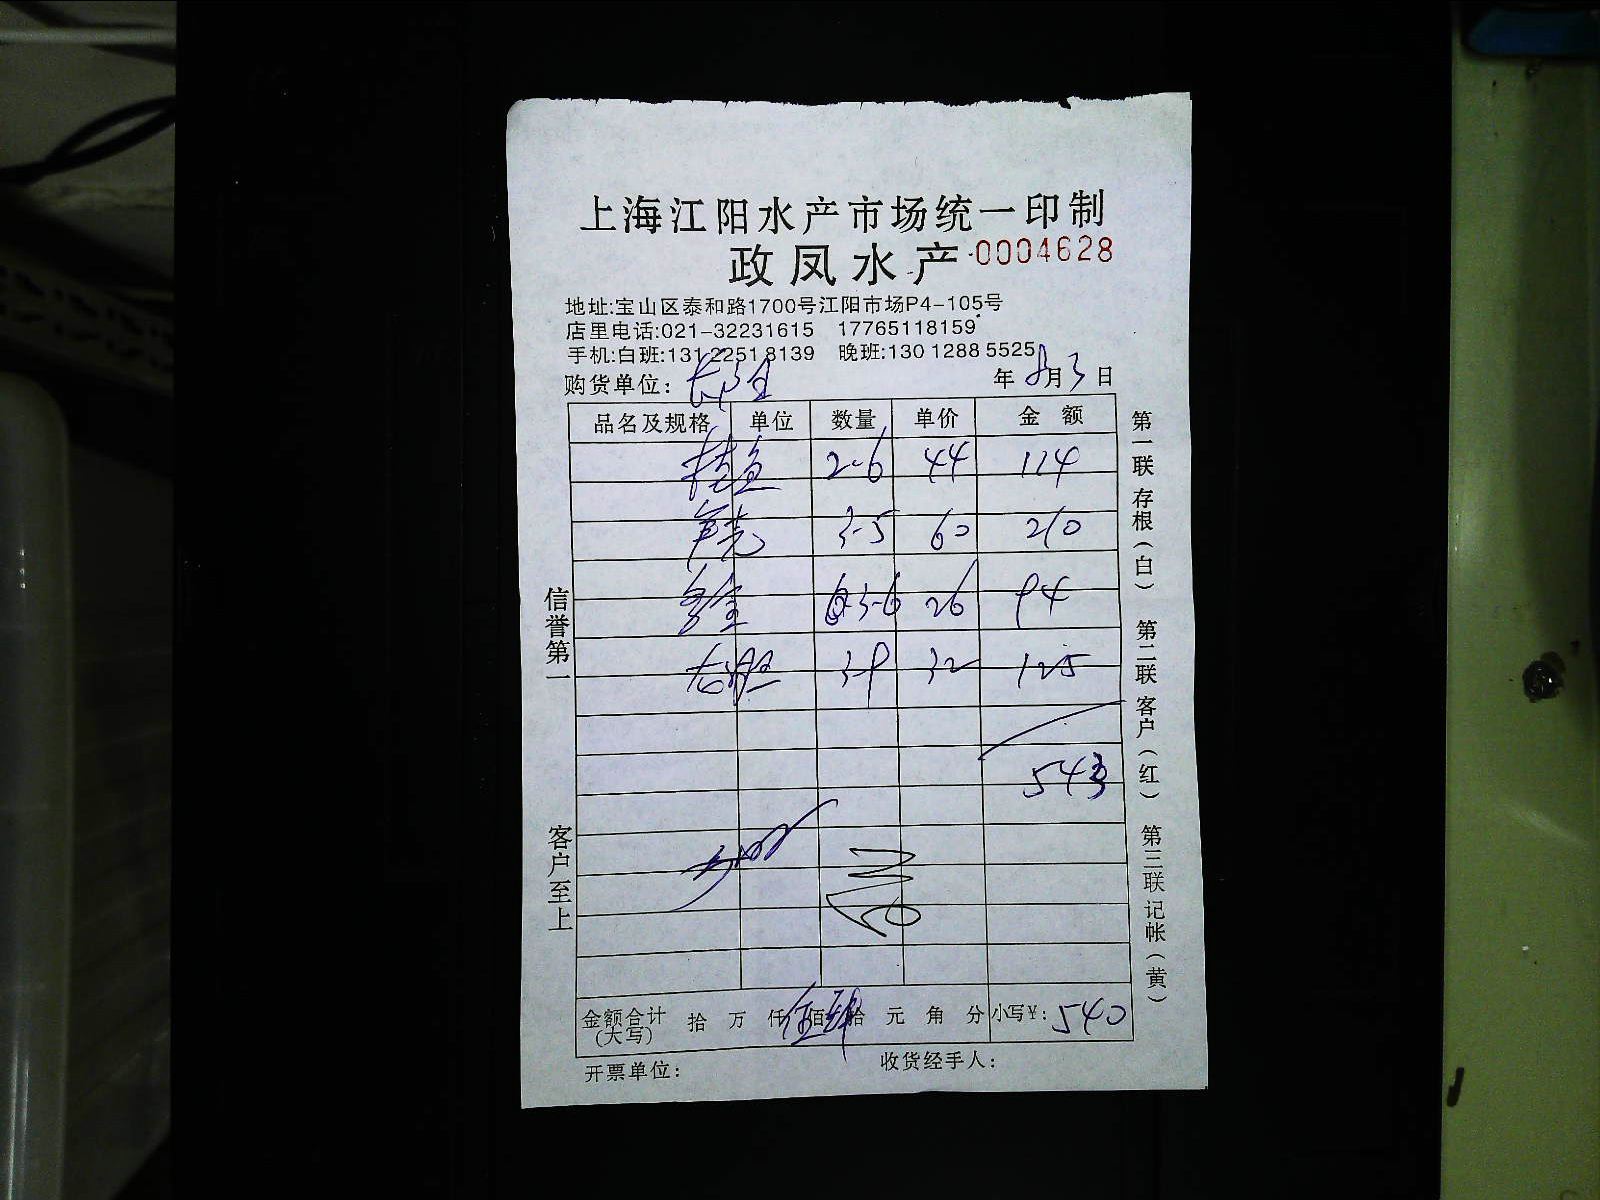 上海江阳水产市场统一印制
政凤水产 0004628
地址:宝山区泰和路1700号江阳市场P4-105号
店里电话:021-32231615 17765118159
手机:白班:131 2251 8139 晚班:130 1288 5525
购货单位: 年 8月3日
品名及规格 单位 数量 单价 金额
桂鱼 2-6 44 114
3-5 60 210
3-6 26 94
3-9 32 125
543
金额合计(大写) 拾 万 仟 伍佰肆拾 元 角 分 小写¥: 540
开票单位: 收货经手人:
信誉第一
客户至上
第一联 存根(白) 第二联 客户(红) 第三联 记帐(黄)